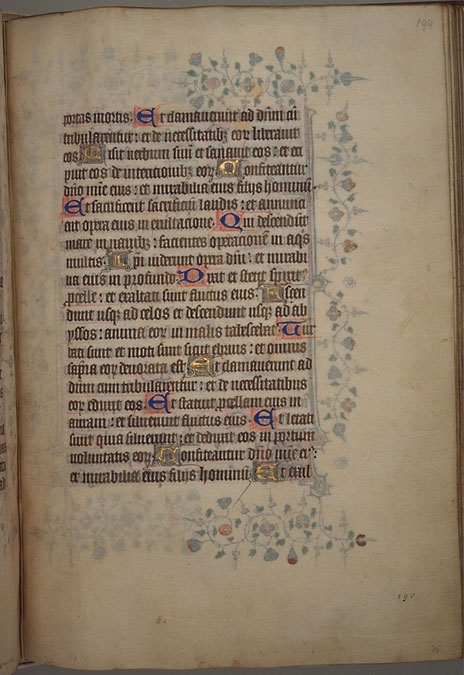 194
portas mortis. Et clamauerunt ad dñm cū
tribularentur : et de necessitatibꝫ eoꝝ liberauit
eos Misit uerbum suū et sanauit eos : et eri
puit eos de intericionibꝫ eoꝝ Confiteantur
dño mīe eius : et mirabilia eius filijs hominū
Et sacrificent sacrificiū laudis : et annunci
ent opera eius in exultacione. Qui descendūt
mare in nauibꝫ : facientes operacionem in aqͥs
multis. Ipī uiderunt opera dñi : et mirabi
lia eius in profundo Dixit et stetit spiritꝯ
procelle : et exaltati sunt fluctus eius. Ascen
dunt usqꝫ ad celos et descendunt usqꝫ ad ab
yssos : anima eoꝝ in malis tabescebat Tur
bati sunt et moti sunt sicut ebrius : et omnis
sapīa eoꝝ deuorata est Et clamauerunt ad
dūm cum tribularentur : et de necessitatibus
eoꝝ eduxit eos Et statuit procellam eius in
auram : et siluerunt fluctus eius. Et letati
sunt quia siluerunt : et deduxit eos in portum
uoluntatis eoꝝ Confiteantur dño mīe eiꝰ :
et mirabilia eius filijs hominū Et exal
190